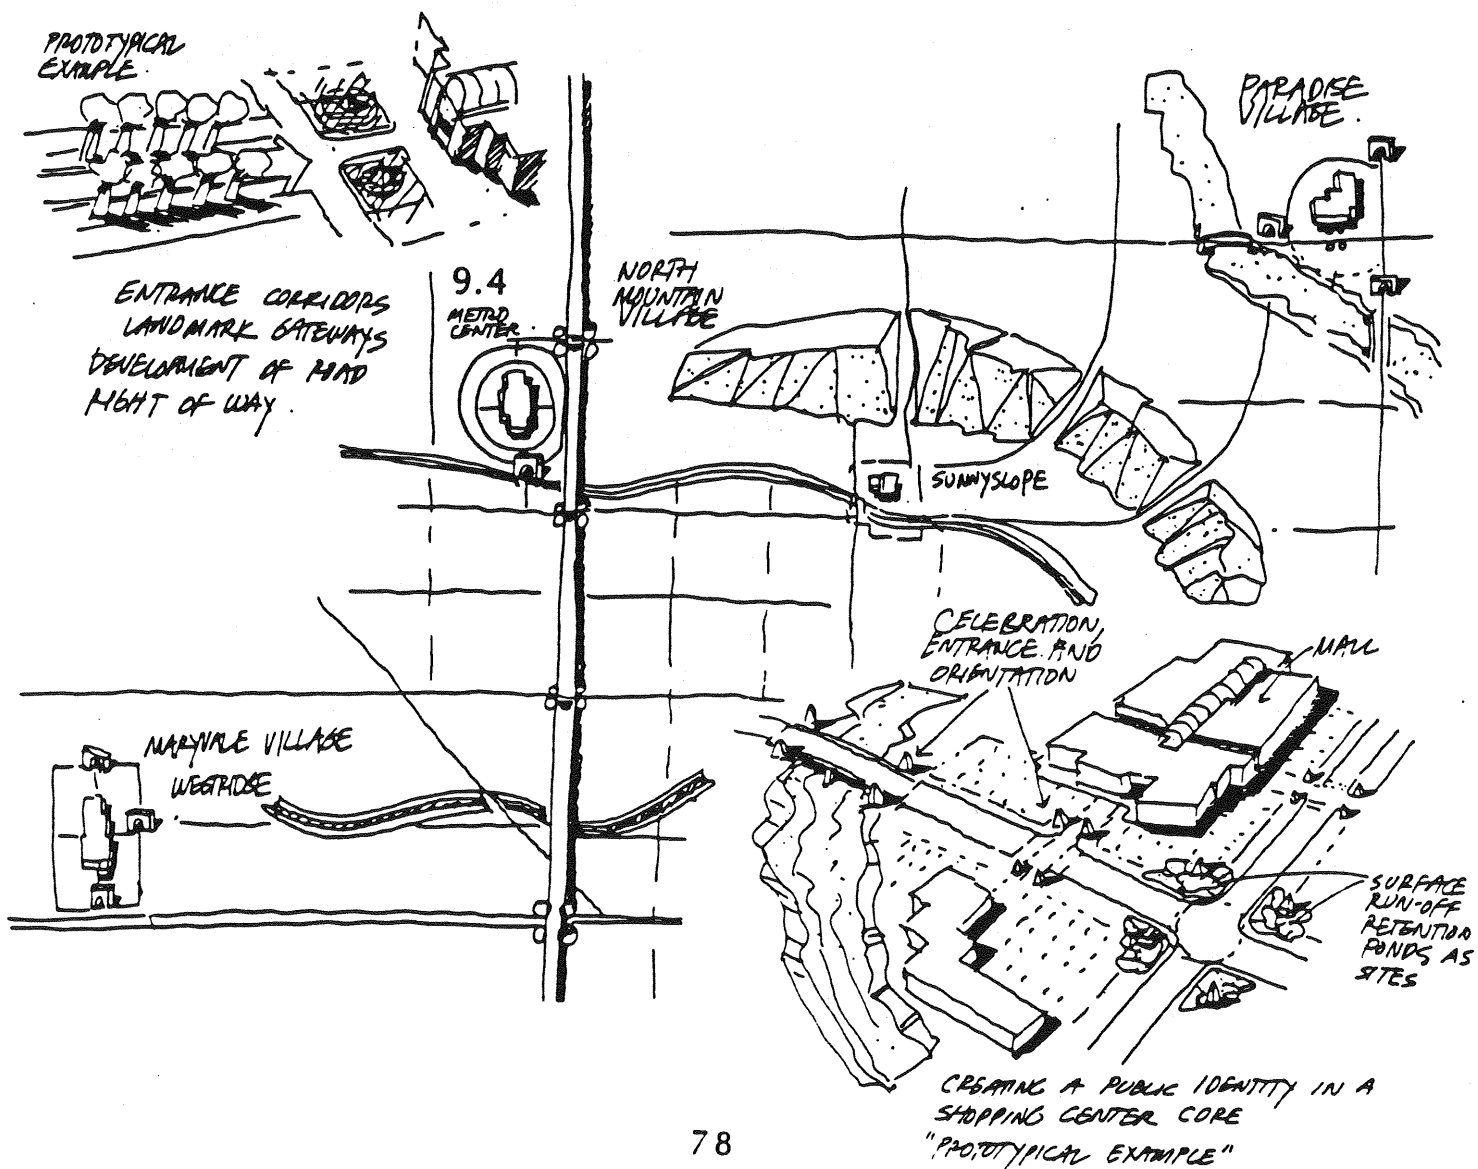 PROTOTYPICAL
EXAMPLE.
PARADISE
VILLAGE.
ENTRANCE CORRIDORS
LANDMARK GATEWAYS
DEVELOPMENT OF ROAD
RIGHT OF WAY.
9.4
METRO
CENTER
NORTH
MOUNTAIN
VILLAGE
SUNNYSLOPE
CELEBRATION,
ENTRANCE AND
ORIENTATION
MALL
MARYVALE VILLAGE
WESTRIDGE
SURFACE
RUN-OFF
RETENTION
PONDS AS
SITES
CREATING A PUBLIC IDENTITY IN A
SHOPPING CENTER CORE
"PROTOTYPICAL EXAMPLE"
78